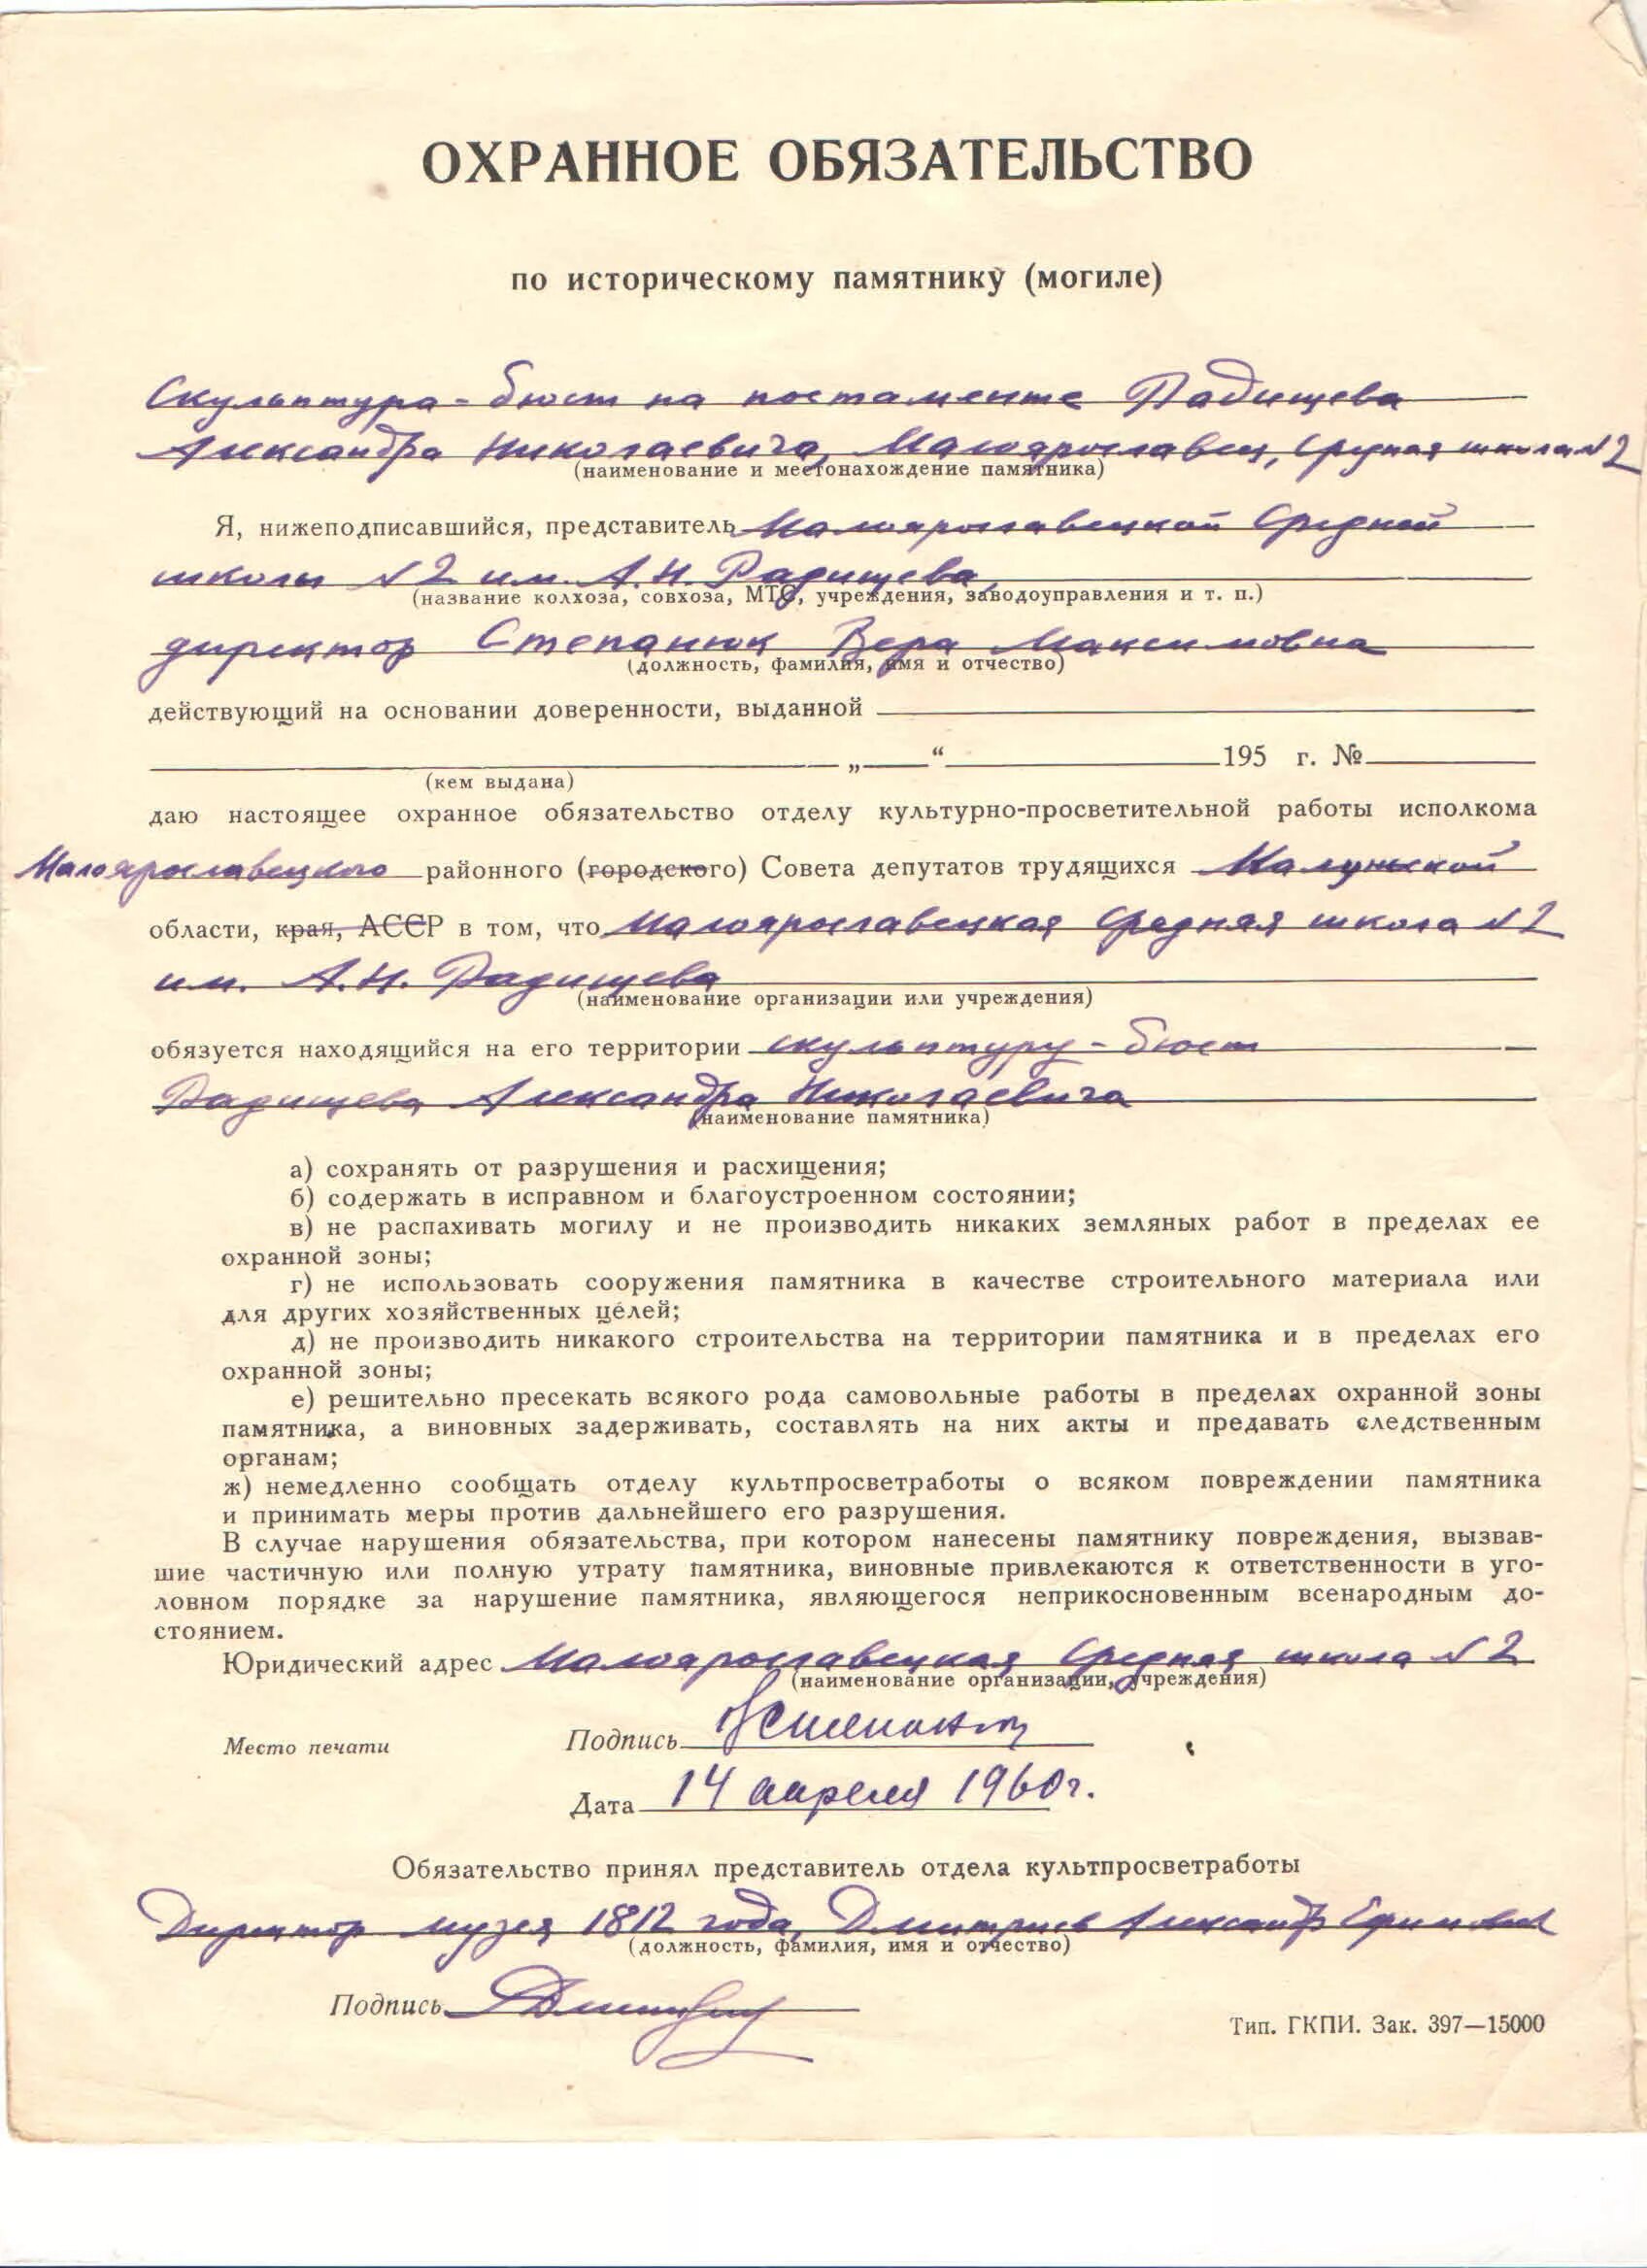 ОХРАННОЕ ОБЯЗАТЕЛЬСТВО
по историческому памятнику (могиле)
Скульптура-бюст на постаменте Радищева
Александра Николаевича, Малоярославец, Средняя школа №2
(наименование и местонахождение памятника)
Я, нижеподписавшийся, представитель Малоярославецкой Средней
школы №2 им. А.Н. Радищева,
(название колхоза, совхоза, МТС, учреждения, заводоуправления и т. п.)
директор Степанюк Вера Максимовна
(должность, фамилия, имя и отчество)
действующий на основании доверенности, выданной
„ “ 195 г. №
(кем выдана)
даю настоящее охранное обязательство отделу культурно-просветительной работы исполкома
Малоярославецкого районного (городского) Совета депутатов трудящихся Калужской
области, края, АССР в том, что Малоярославецкая Средняя школа №2
им. А.Н. Радищева
(наименование организации или учреждения)
обязуется находящийся на его территории скульптуру-бюст
Радищева Александра Николаевича
(наименование памятника)
а) сохранять от разрушения и расхищения;
б) содержать в исправном и благоустроенном состоянии;
в) не распахивать могилу и не производить никаких земляных работ в пределах ее
охранной зоны;
г) не использовать сооружения памятника в качестве строительного материала или
для других хозяйственных целей;
д) не производить никакого строительства на территории памятника и в пределах его
охранной зоны;
е) решительно пресекать всякого рода самовольные работы в пределах охранной зоны
памятника, а виновных задерживать, составлять на них акты и предавать следственным
органам;
ж) немедленно сообщать отделу культпросветработы о всяком повреждении памятника
и принимать меры против дальнейшего его разрушения.
В случае нарушения обязательства, при котором нанесены памятнику повреждения, вызвав-
шие частичную или полную утрату памятника, виновные привлекаются к ответственности в уго-
ловном порядке за нарушение памятника, являющегося неприкосновенным всенародным до-
стоянием.
Юридический адрес Малоярославецкая Средняя школа №2
(наименование организации, учреждения)
Место печати Подпись ВСтепанюк
Дата 14 апреля 1960г.
Обязательство принял представитель отдела культпросветработы
Директор музея 1812 года, Дмитриев Александр Ефимович
(должность, фамилия, имя и отчество)
Подпись
Тип. ГКПИ. Зак. 397—15000